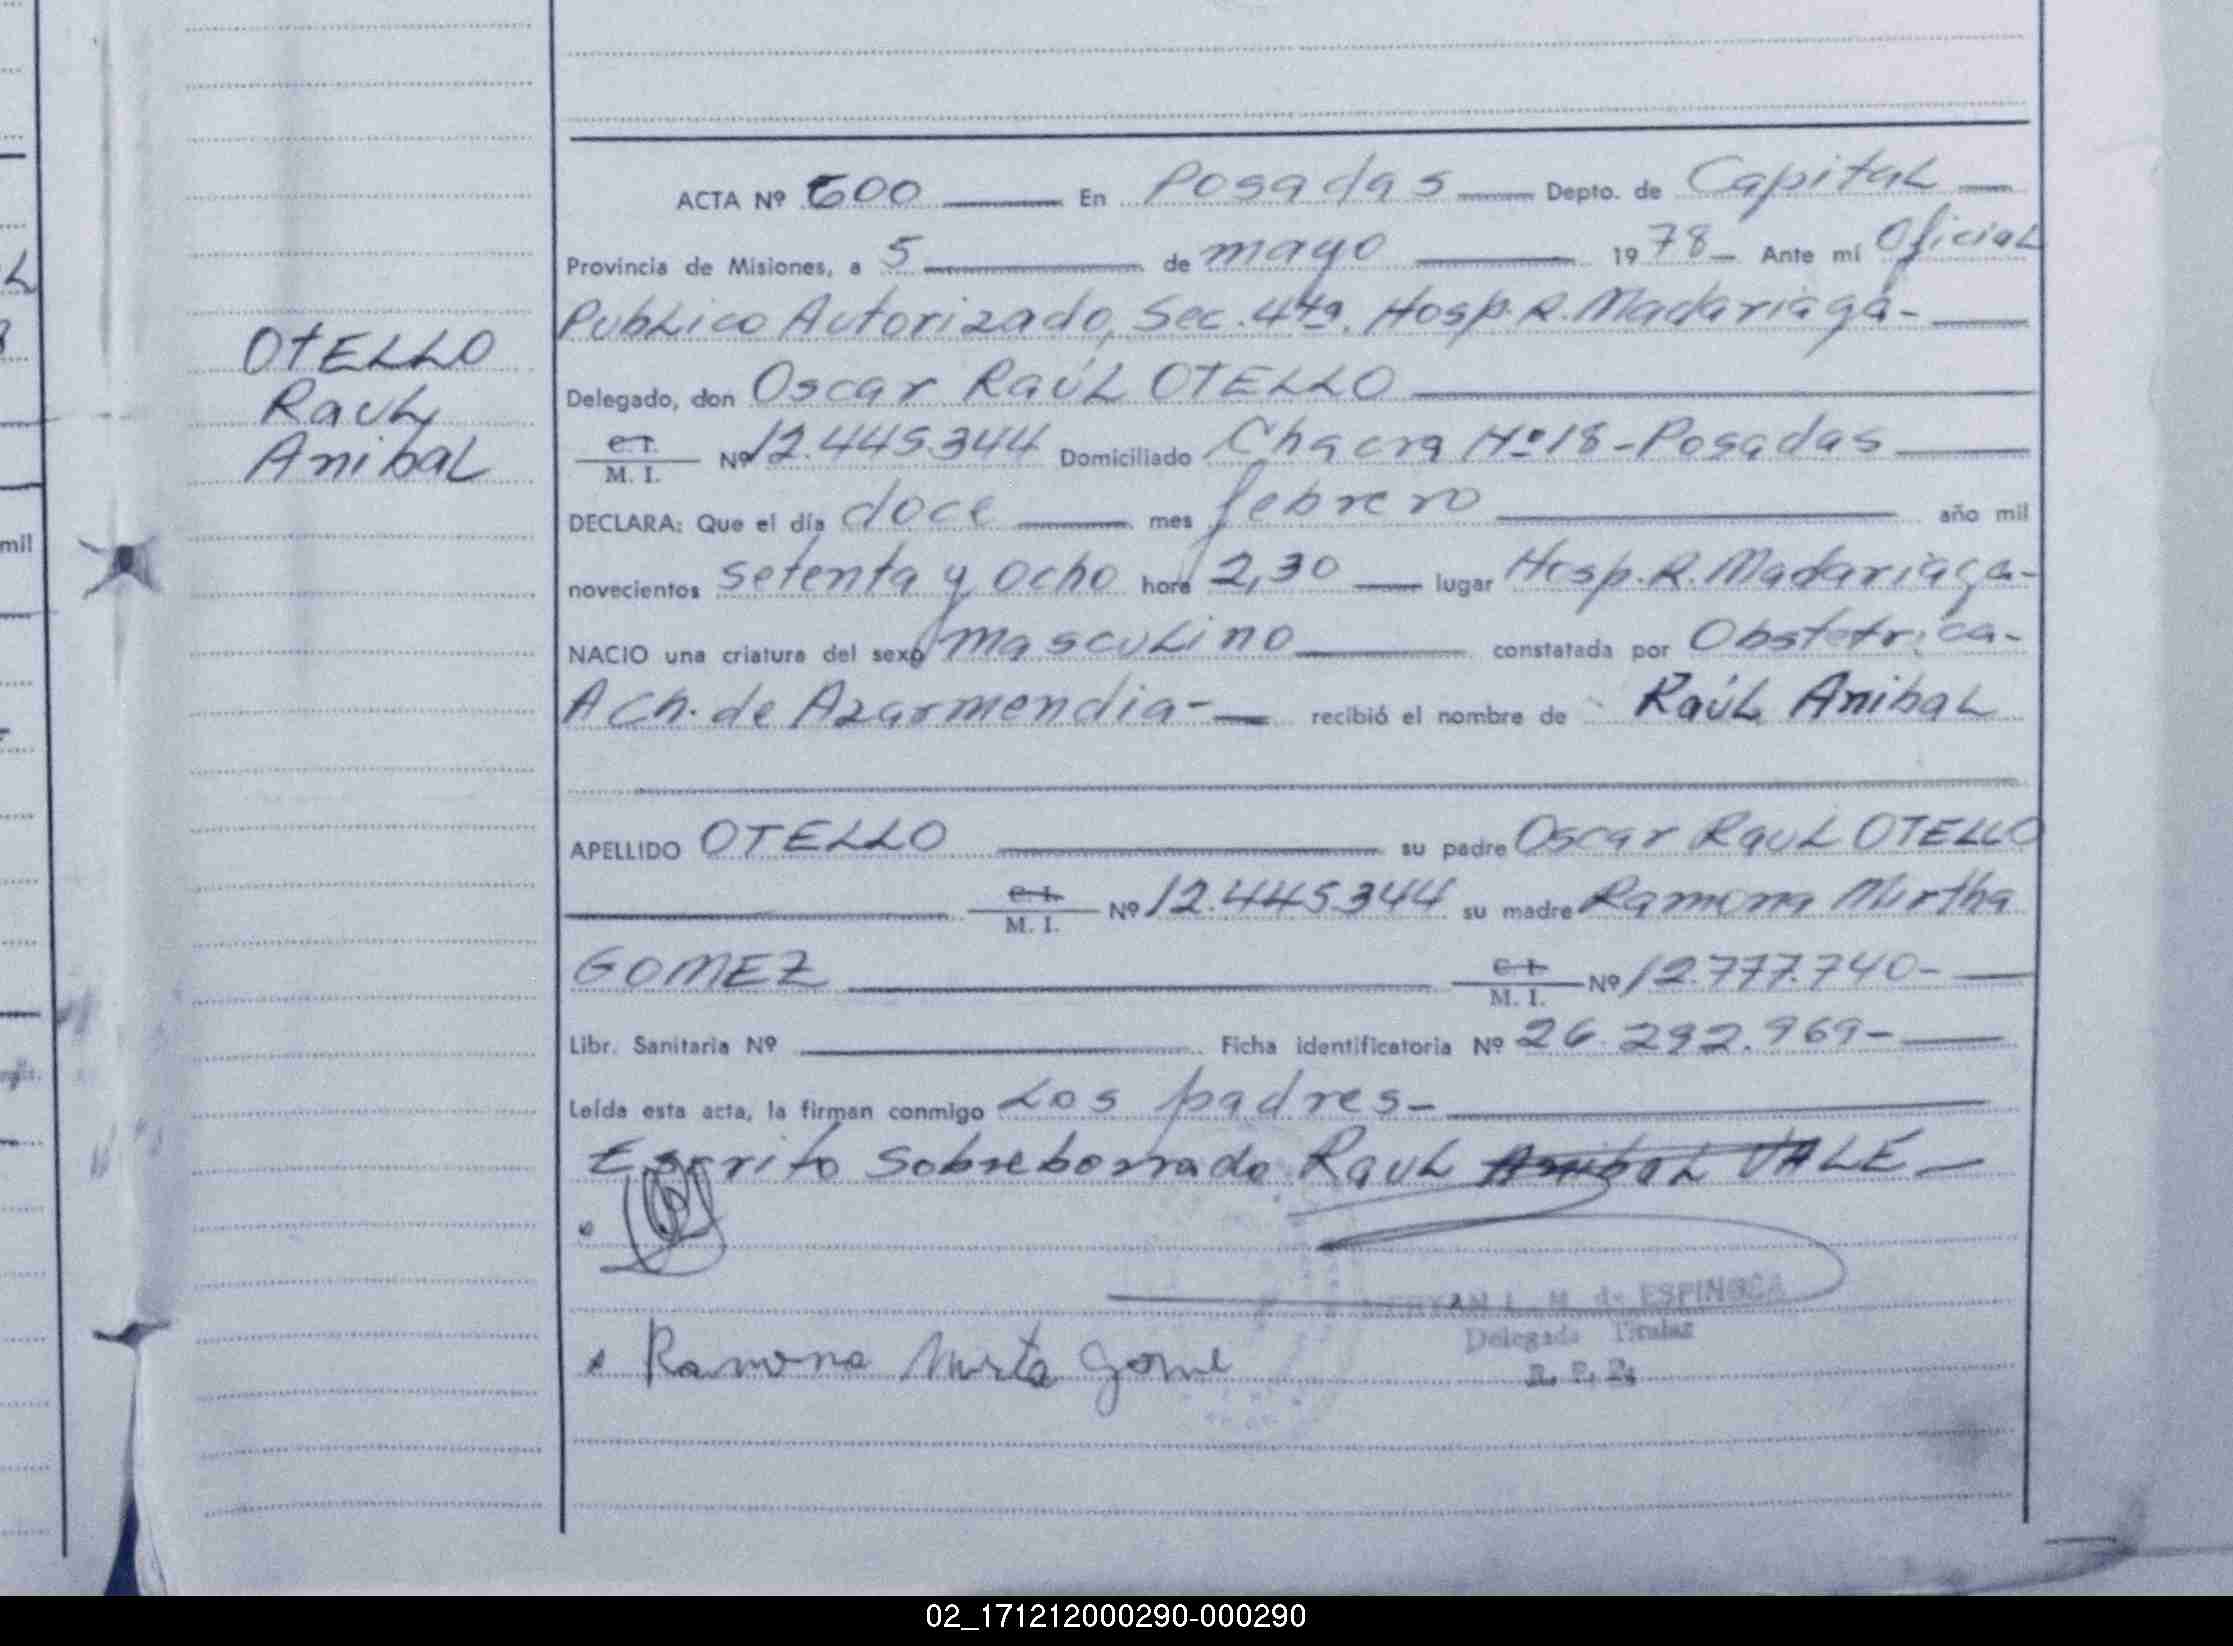 OTELLO
Raul
Anibal
ACTA Nº 600 En Posadas Depto. de Capital
Provincia de Misiones, a 5 de mayo 1978- Ante mí Oficial
Publico Autorizado, Sec. 4ta. Hosp. R. Madariaga-
Delegado, don Oscar Raúl OTELLO
C.I. M. I. Nº 12.445.344 Domiciliado Chacra Nº 18-Posadas
DECLARA: Que el día doce mes febrero año mil
novecientos setenta y ocho hora 2,30 lugar Hosp. R. Madariaga-
NACIO una criatura del sexo masculino constatada por Obstetrica-
A Ch. de Azarmendia- recibió el nombre de Raúl Anibal
APELLIDO OTELLO su padre Oscar Raul OTELLO
C.I. M. I. Nº 12.445.344 su madre Ramona Mirtha
GOMEZ C.I. M. I. Nº 12.777.740-
Libr. Sanitaria Nº Ficha identificatoria Nº 26.292.969-
Leída esta acta, la firman conmigo Los padres-
Escrito Sobreborrado Raul Anibal VALE-
L. M. de ESPINOZA
Delegada Titular
Ramona Mirta Gome
mil
02_171212000290-000290